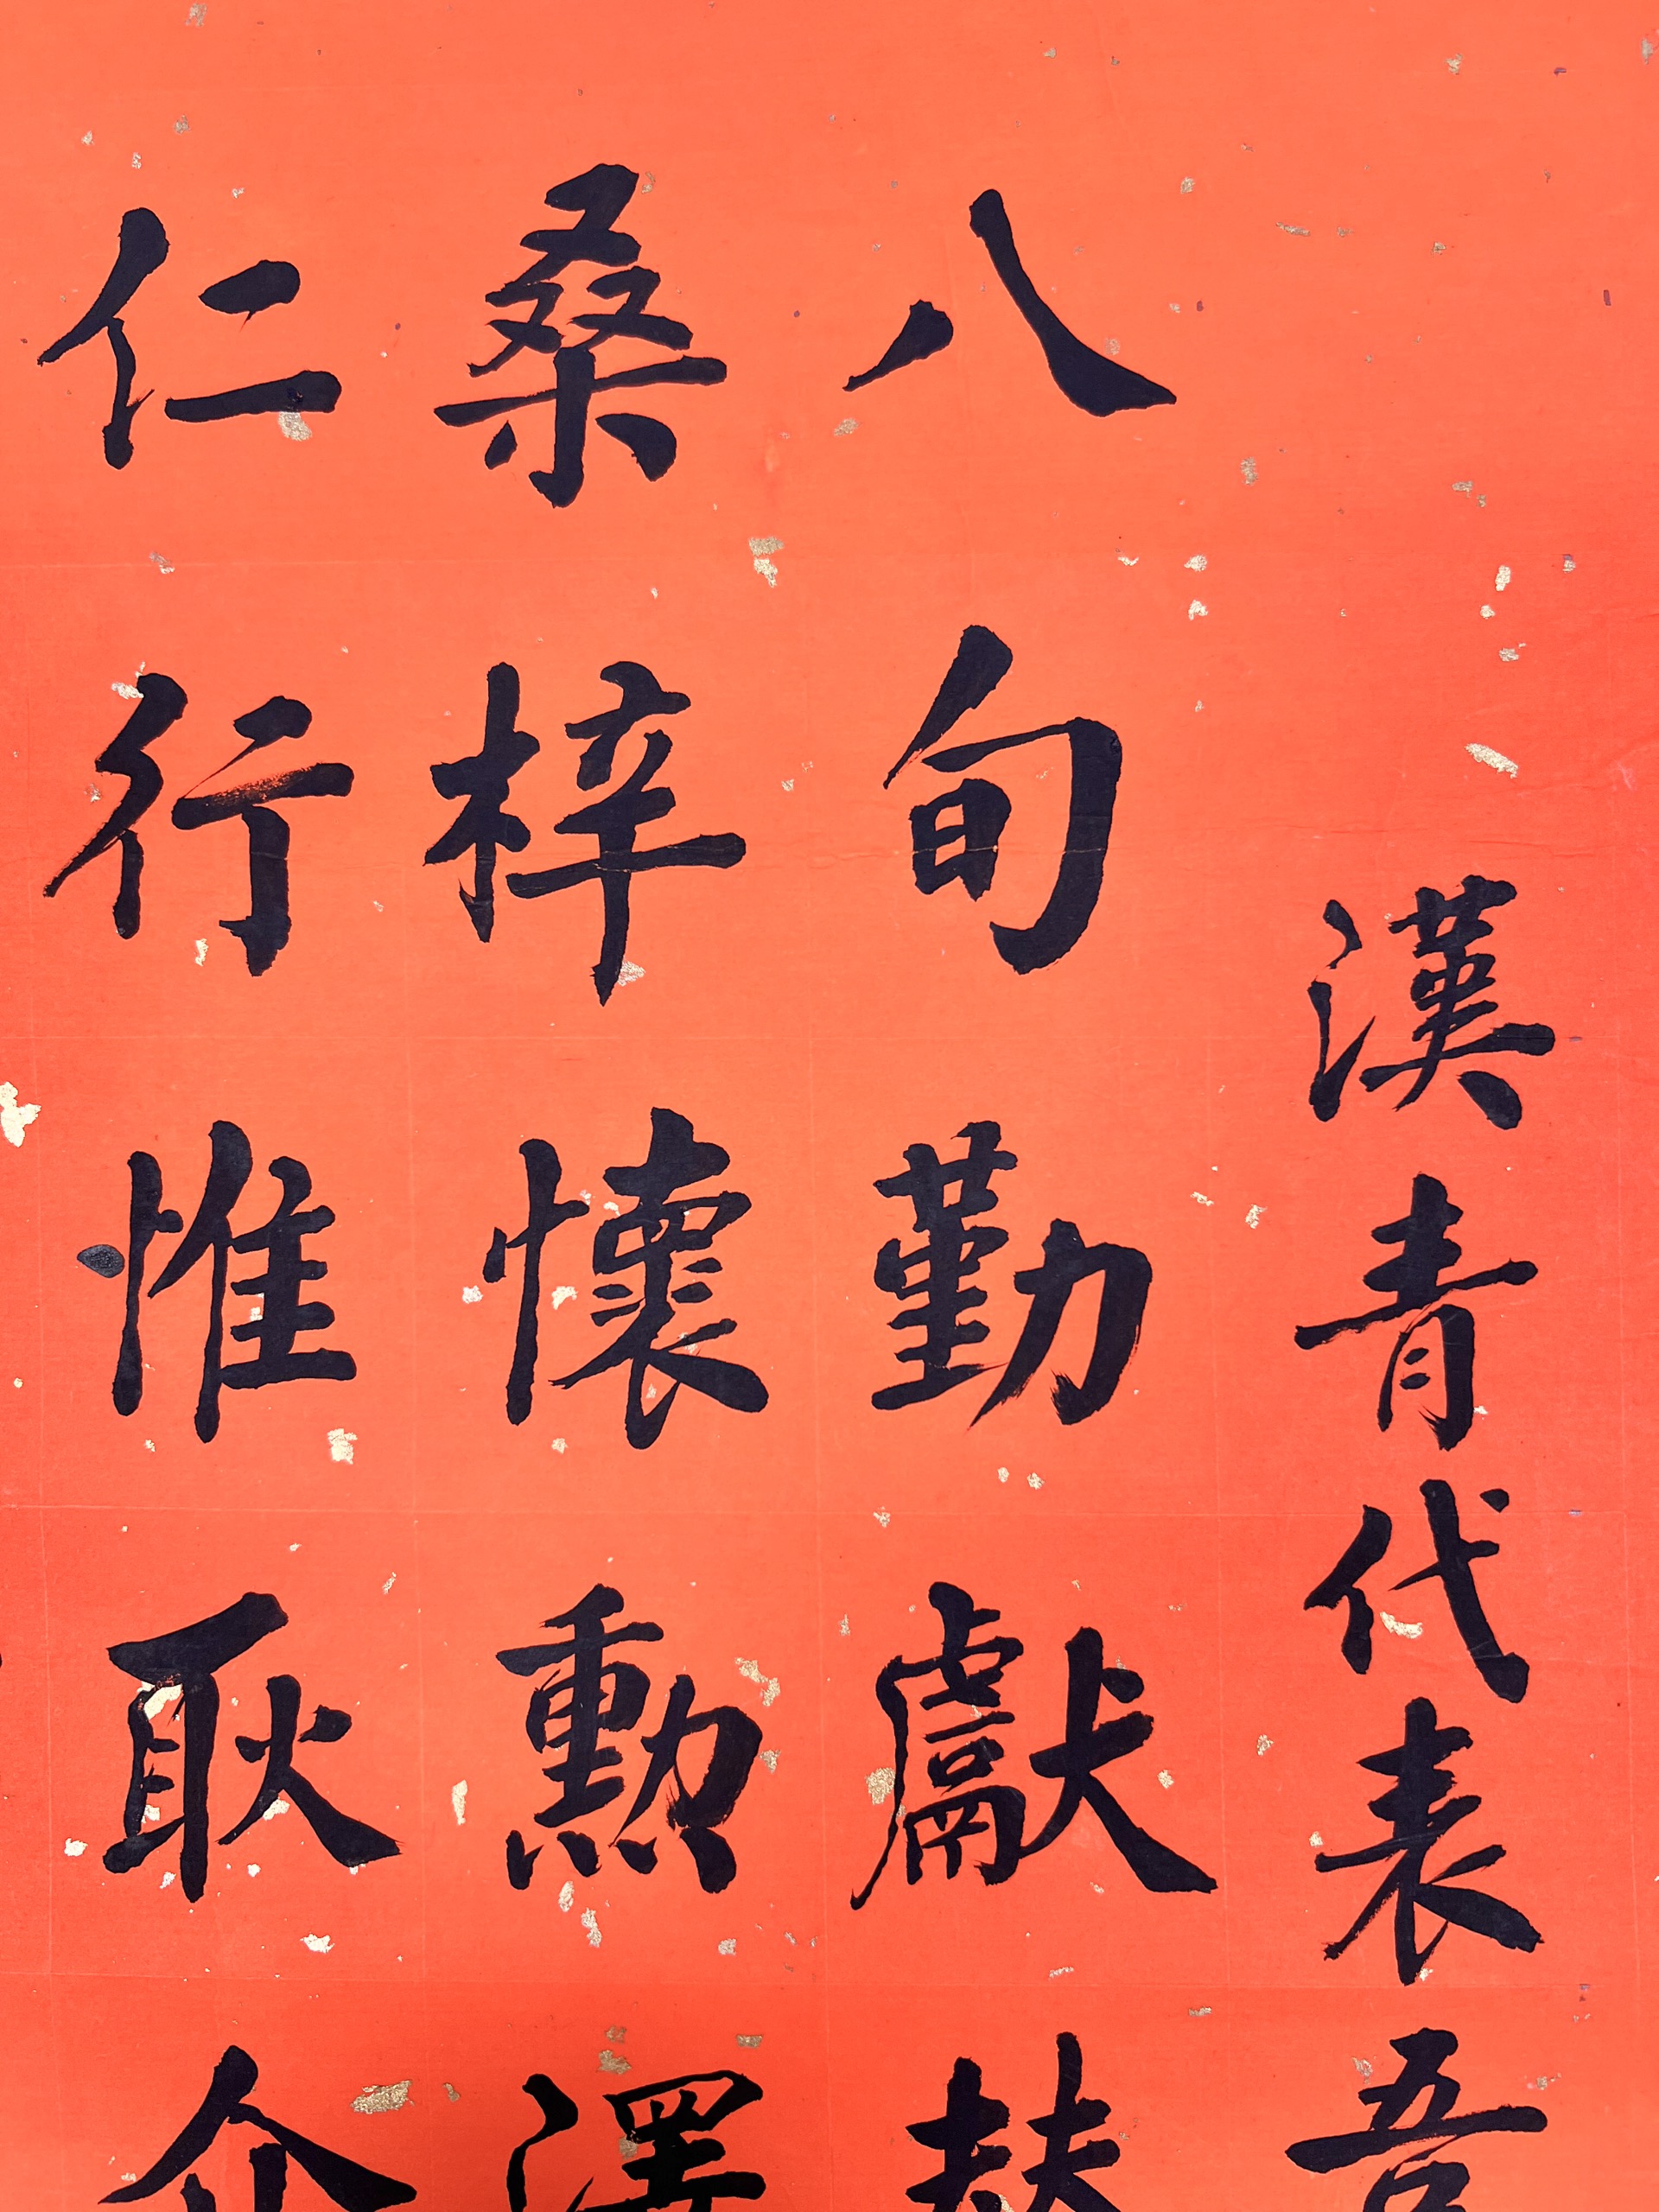 漢青代表吾
八旬勤獻
桑梓懷勳澤
仁行惟耿介